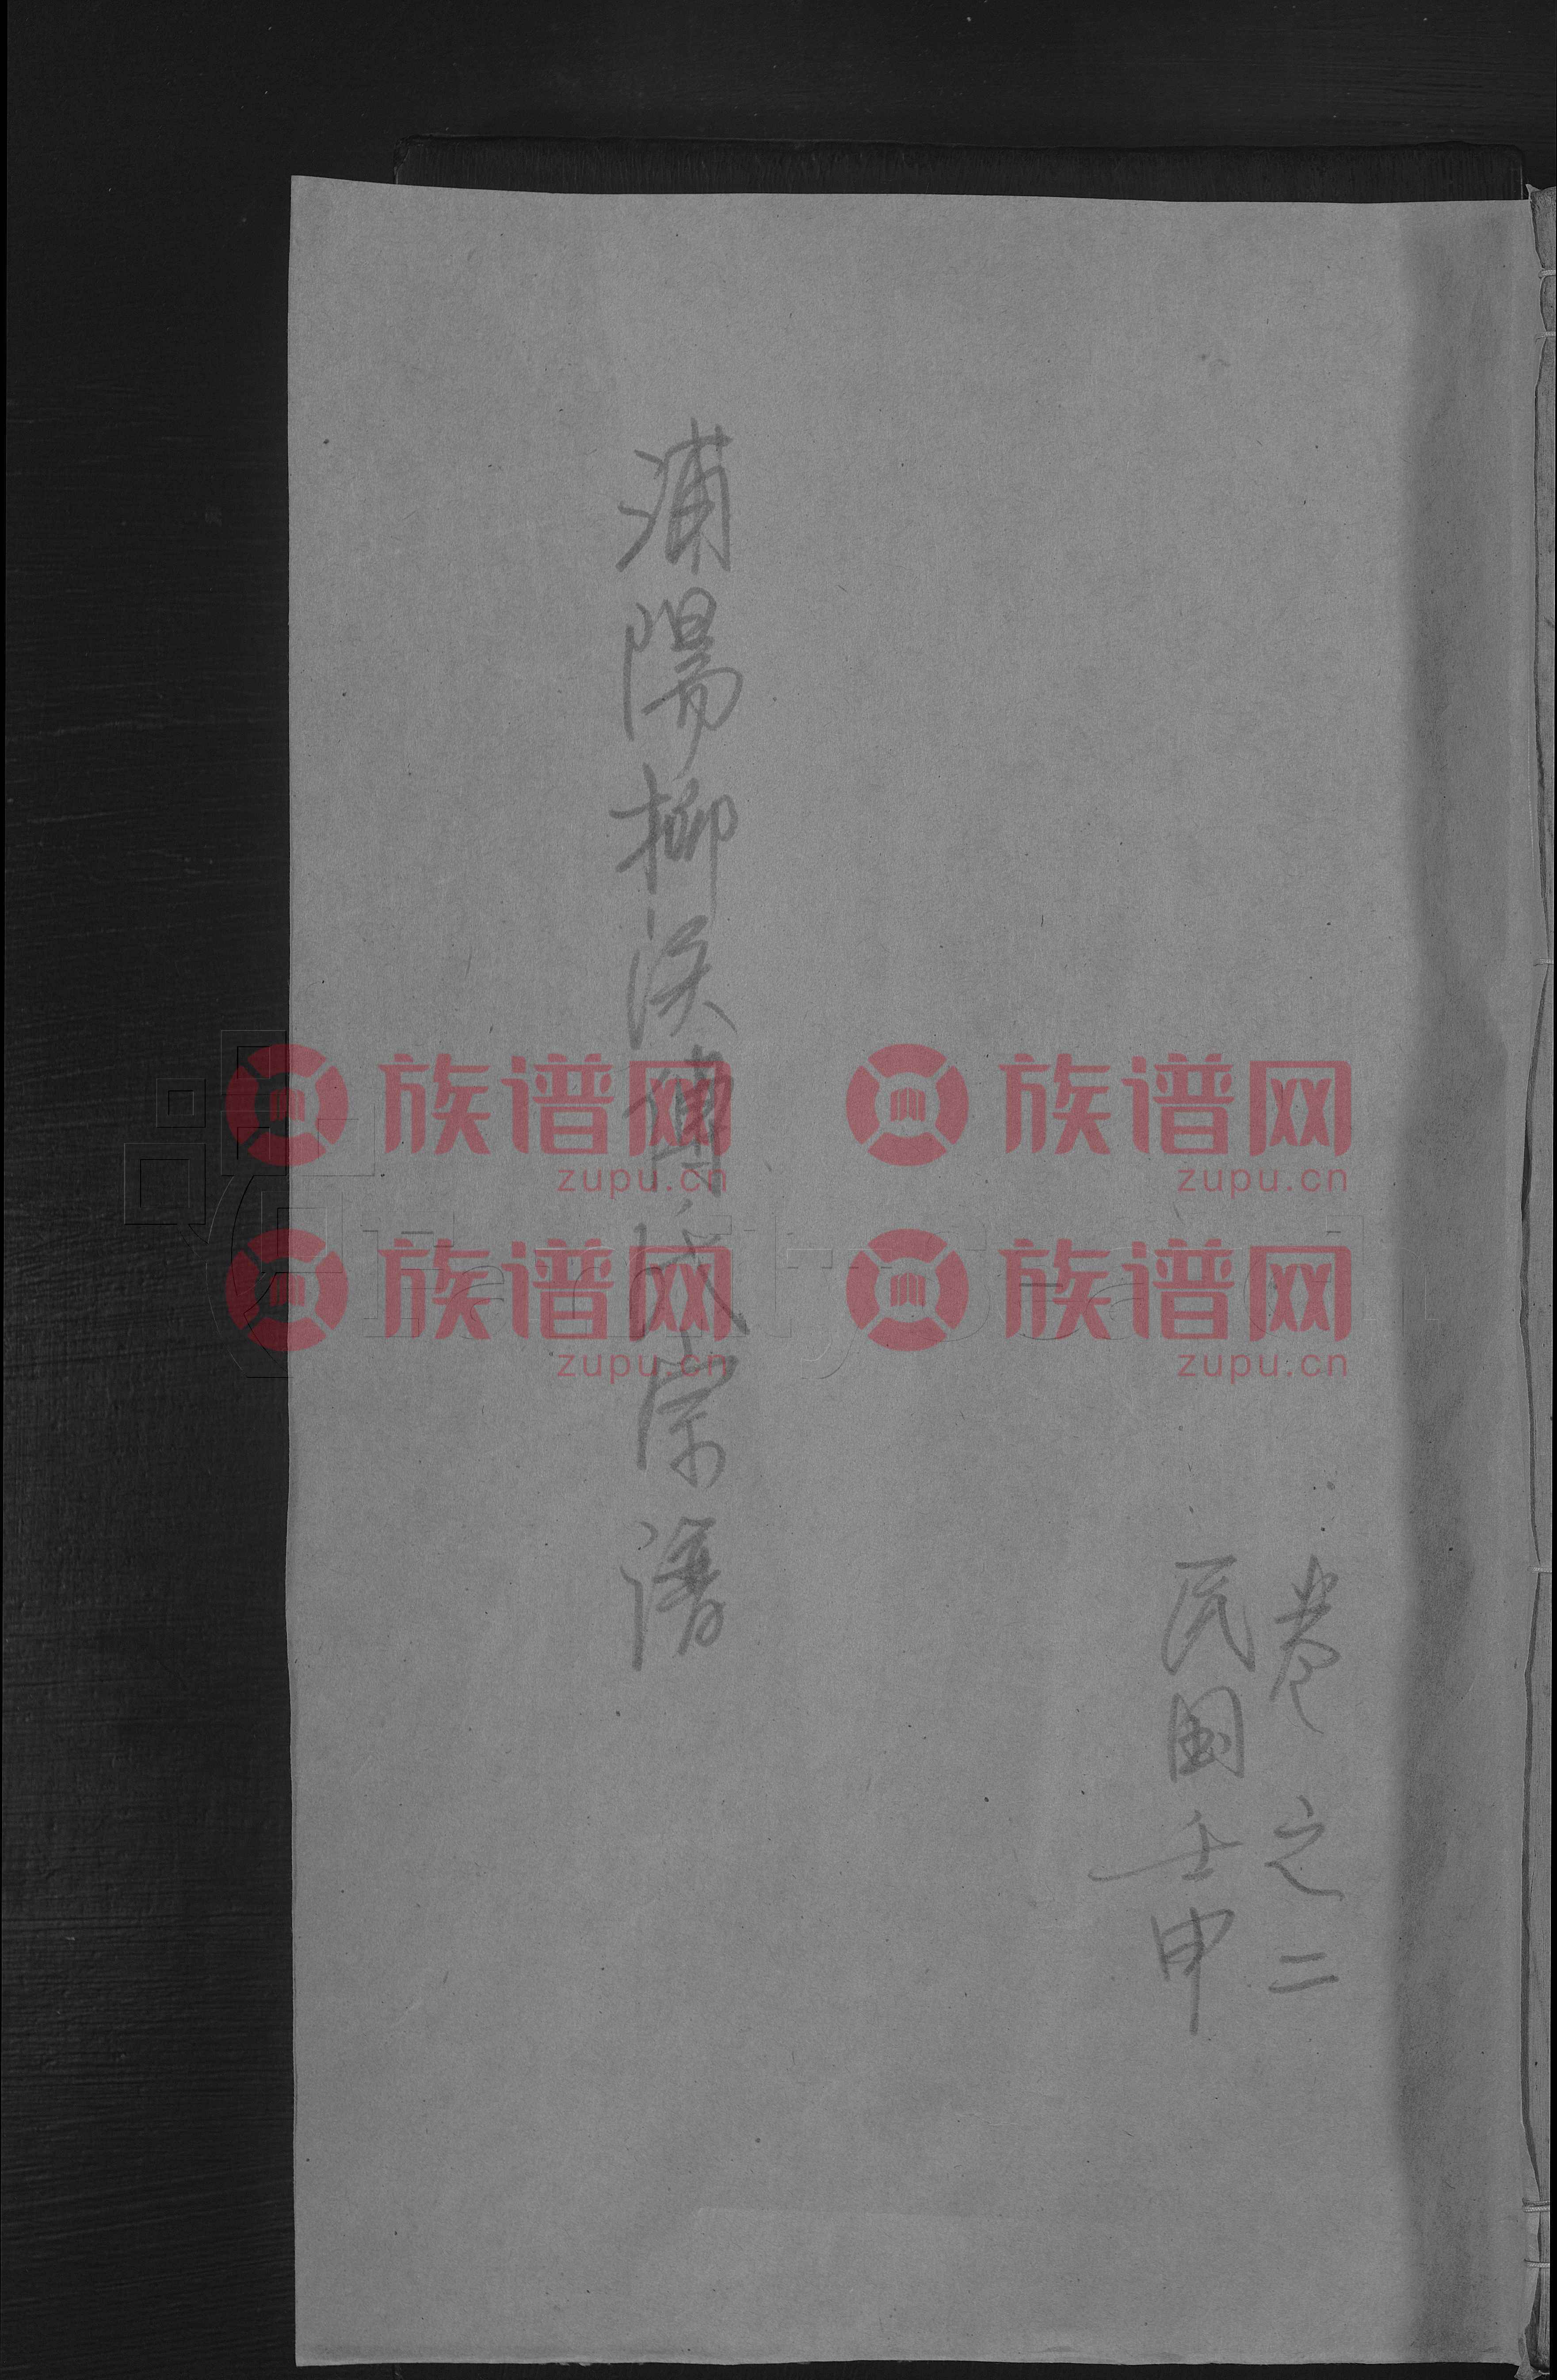 卷之二
民国壬申
浦陽柳溪傅氏宗譜
族谱网 族谱网
zupu.cn zupu.cn
族谱网 族谱网
zupu.cn zupu.cn
FamilySearch